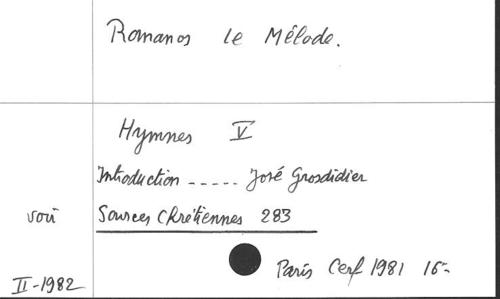 Romanos le Mélode.
Hymnes V
Introduction ..... José Grosdidier
voir Sources Chrétiennes 283
Paris Cerf 1981 16-
II-1982